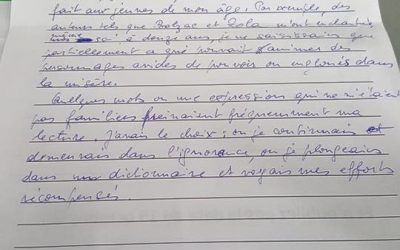 fait aux jeunes de mon âge. Par exemple des
auteurs tels que Balzac et Zola m'ont enchanté,
même si à douze ans, je ne saisissais que
partiellement ce que pouvait animer des
personnages avides de pouvoir ou englués dans
la misère.
Quelques mots ou une expression qui ne m'étaient
pas familiers freinaient fréquemment ma
lecture. J'avais le choix : ou je continuais et
demeurais dans l'ignorance, ou je plongeais
dans mon dictionnaire et voyais mes efforts
récompensés.